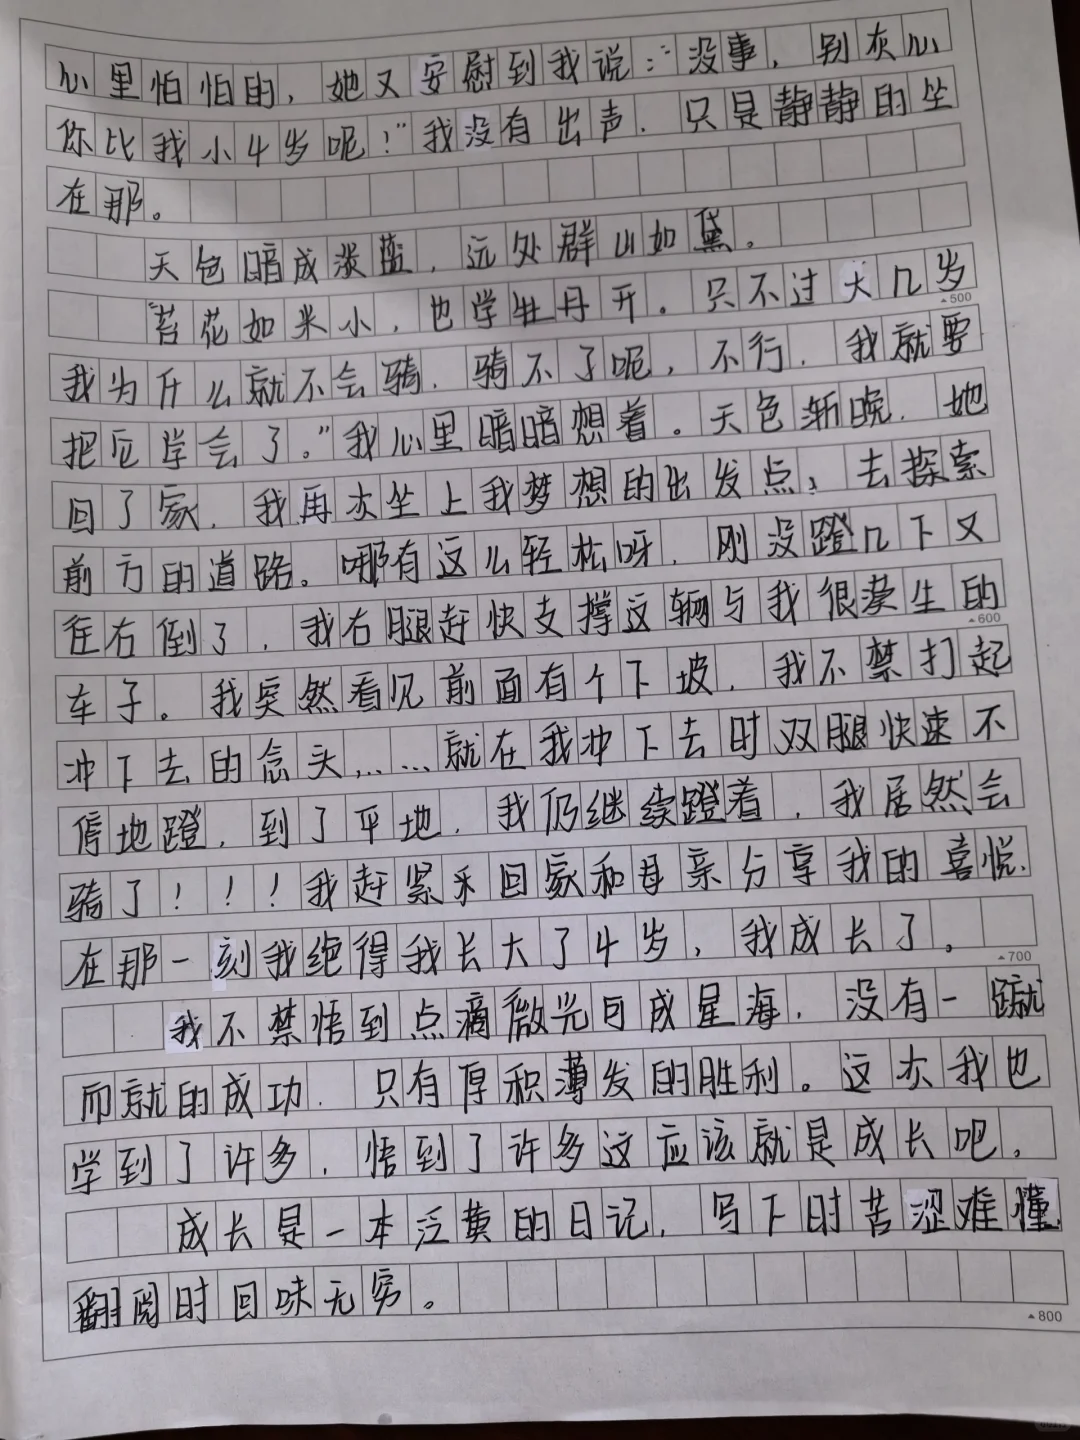 心里怕怕的，她又安慰到我说：“没事，别灰心
你比我小4岁呢！”我没有出声，只是静静的坐
在那。
天色暗成淡蓝，远处群山如黛。
“苔花如米小，也学牡丹开。只不过大几岁
500
我为什么就不会骑，骑不了呢，不行，我就要
把它学会了。”我心里暗暗想着。天色渐晚，她
回了家，我再次坐上我梦想的出发点，去探索
前方的道路。哪有这么轻松呀，刚没蹬几下又
往右倒了，我右腿赶快支撑这辆与我很陌生的
600
车子。我突然看见前面有个下坡，我不禁打起
冲下去的念头……就在我冲下去时双腿快速不
停地蹬，到了平地，我仍继续蹬着，我居然会
骑了！！！我赶紧来回家和母亲分享我的喜悦，
在那一刻我绝得我长大了4岁，我成长了。
700
我不禁悟到点滴微光可成星海，没有一蹴
而就的成功，只有厚积薄发的胜利。这次我也
学到了许多，悟到了许多这应该就是成长吧。
成长是一本泛黄的日记，写下时苦涩难懂，
翻阅时回味无穷。
800